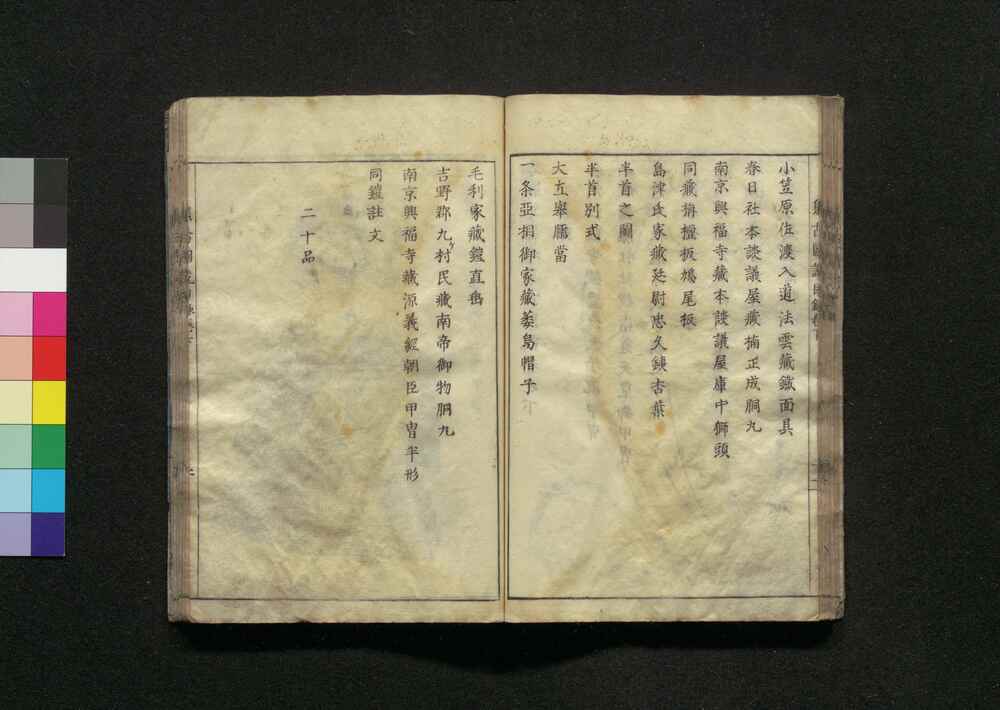 小笠原佐渡入道法雲藏鐵面具
春日社本談議屋藏楠正成胴丸
南京興福寺藏本談議屋庫中獅頭
同藏栴檀板鳩尾板
島津氏家藏廷尉忠久鐵杏葉
半首之圖
半首別式
大立舉臑當
一条亞相御家藏萎烏帽子
毛利家藏鎧直垂
吉野郡九村民藏南帝御物胴丸
南京興福寺藏源義經朝臣甲冑半形
同鎧註文
二十品